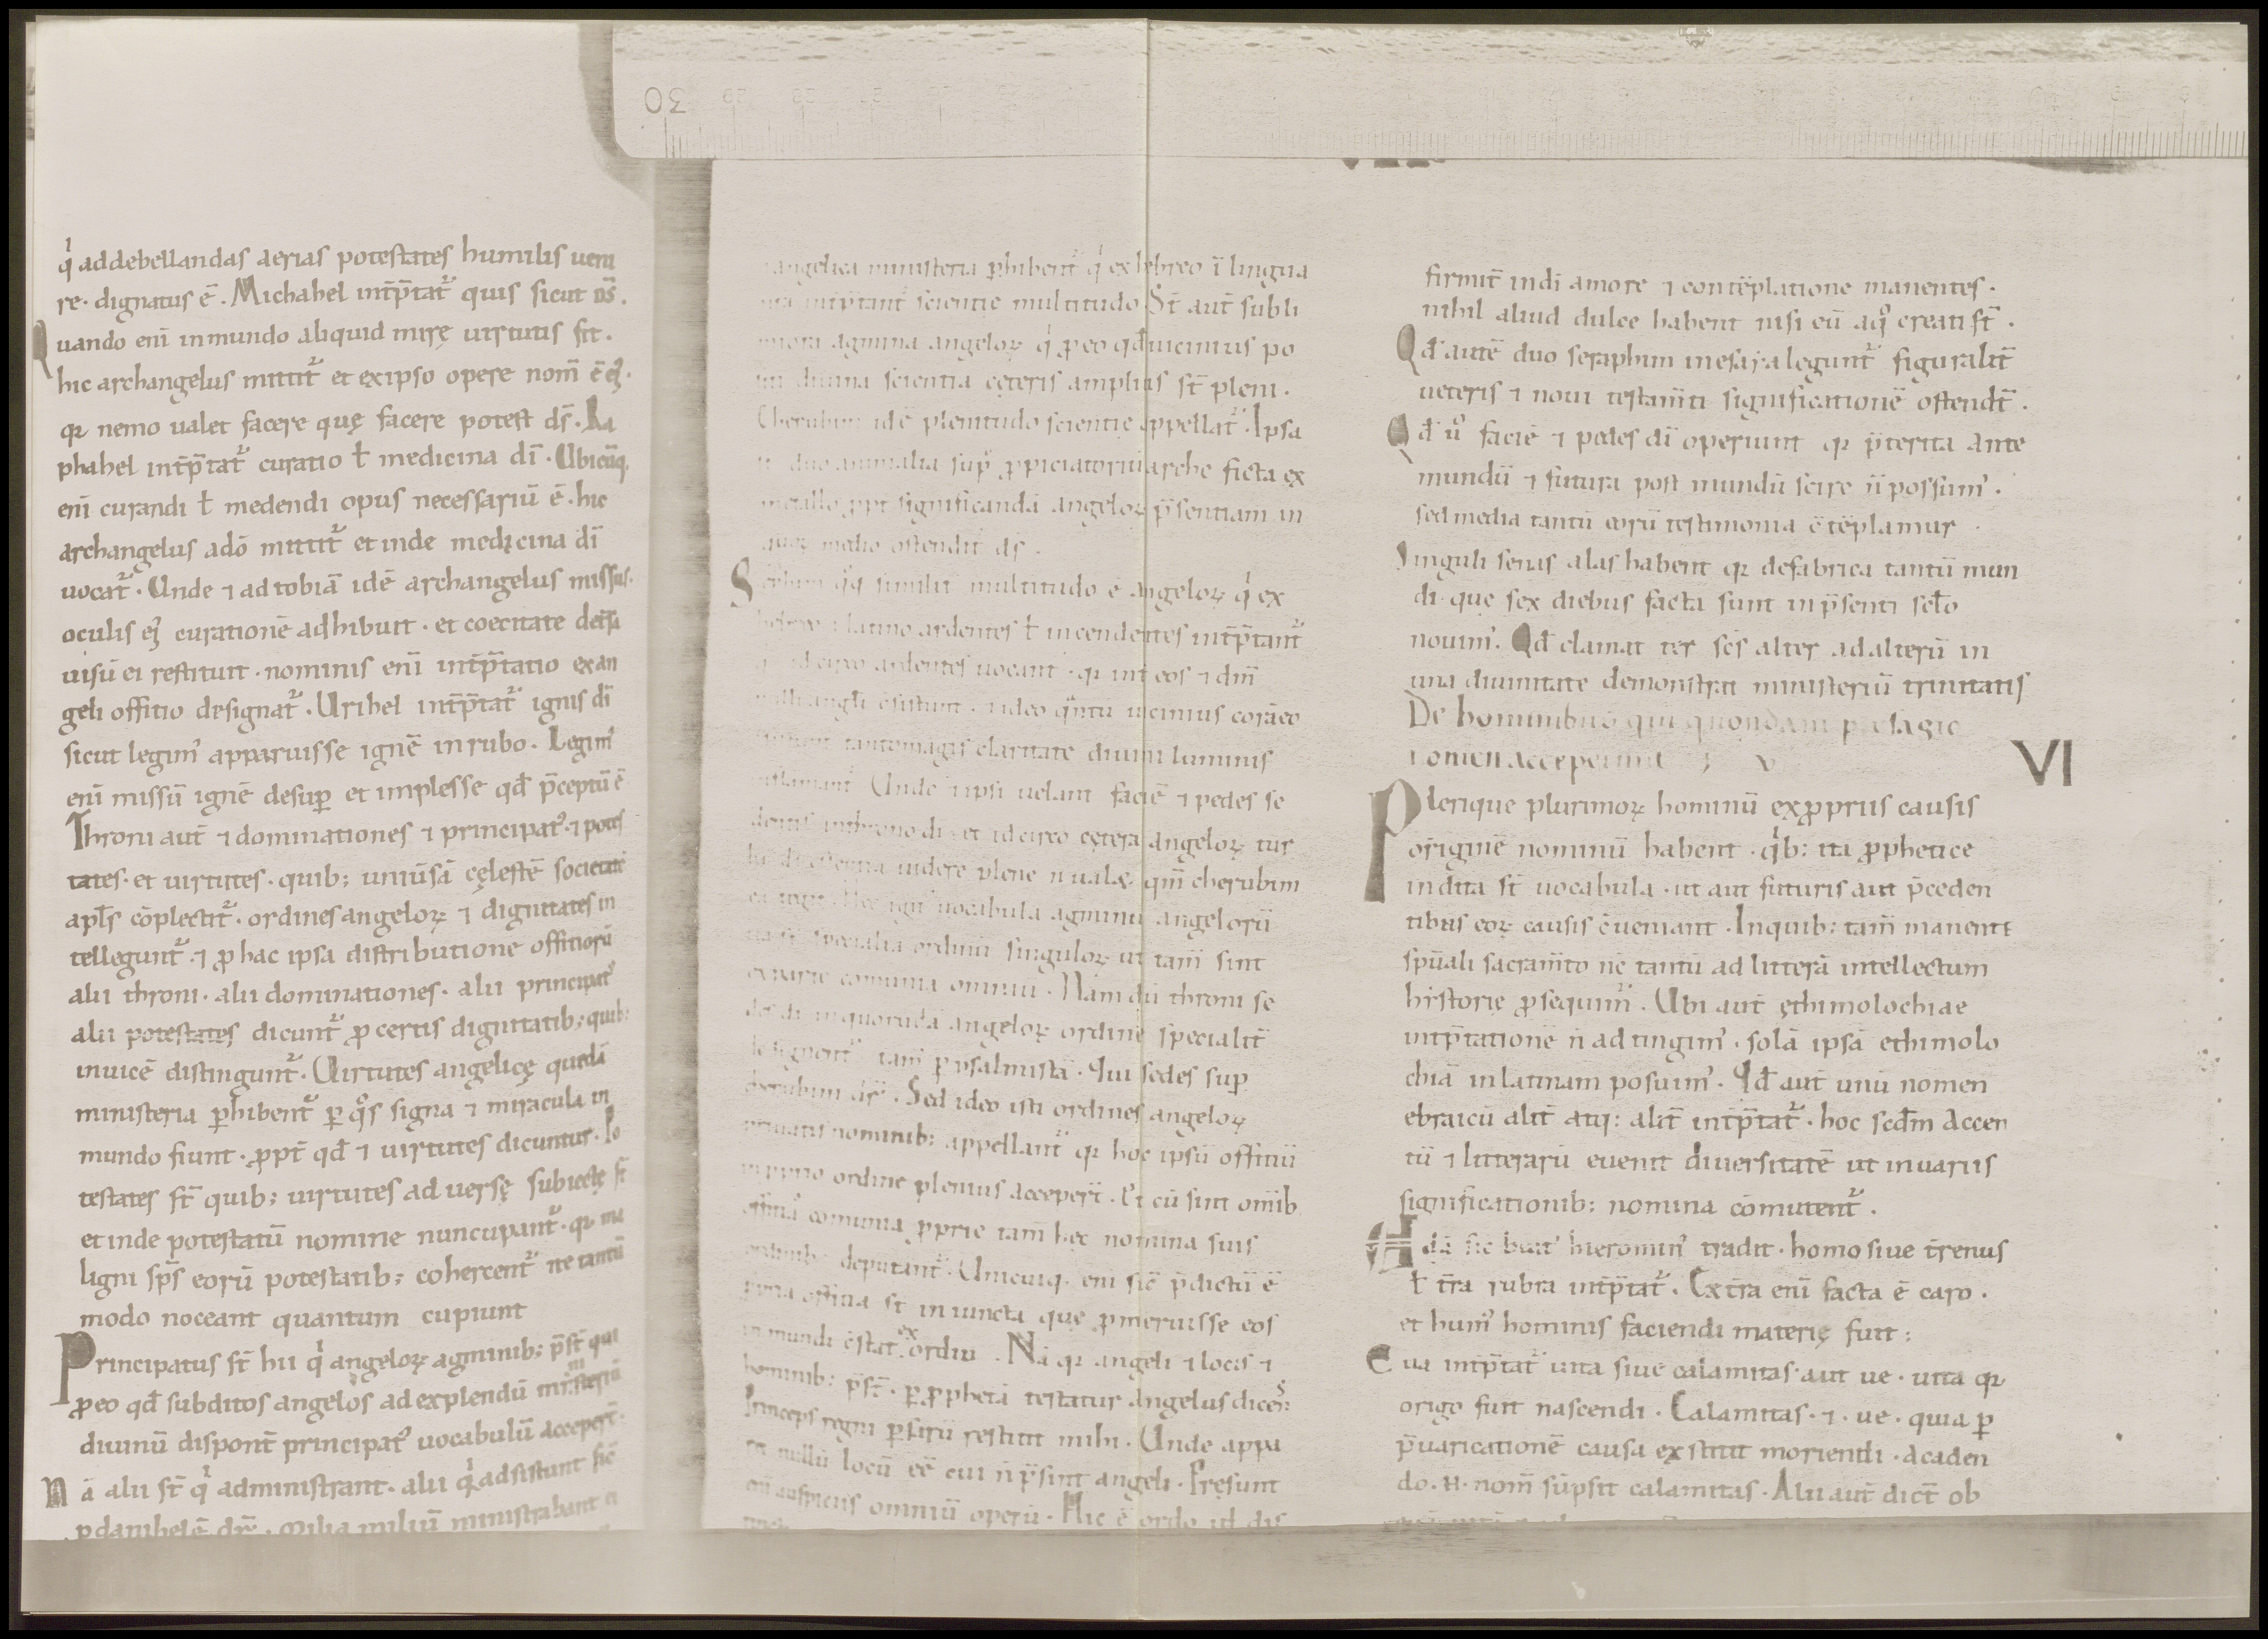 30 29 28 27
q̇ addebellandas aerias potestates humilis ueni
re · dignatus ē · Michahel int̄p̄tat᷑ quis sicut d̄s̄ .
Quando eni᷑ inmundo aliquid mirę uirtutis fit .
hic archangelus mittit᷑ et exipso opere nom̄ ē ei᷒ .
qr nemo ualet facere quę facere potest d̄s̄ · Ra
phahel int̄p̄tat᷑ curatio ł medicina d̄i · Ubicūq;
eni᷑ curandi ł medendi opus necessariū ē · hic
archangelus adō mittit᷑ et inde medicina d̄i
uocat᷑ · Unde ⁊ ad tobiā idē archangelus missus·
oculis ei᷒ curationē adhibuit · et coecitate det̄sa
uisū ei restituit · nominis eni᷑ int̄p̄tatio exan
geli offitio designat᷑ · Urihel int̄p̄tat᷑ ignis d̄i
sicut legim᷒ apparuisse ignē inrubo · Legim᷒
eni᷑ missū ignē desuꝑ et implesse qđ p̄ceptū ē
Throni aut̄ ⁊ dominationes ⁊ principat᷒ ⁊ potes
tates · et uirtutes · quib; uniūsā cęlestē societatē
apl̄s cōplectit᷑ · ordines angeloꝝ ⁊ dignitates in
tellegunt᷑ · ⁊ ꝓ hac ipsa distributione offitiorū
alii throni · alii dominationes · alii principat᷒
alii potestates dicunt᷑ ꝓ certis dignitatib; quib;
inuicē distingunt᷑ · Uirtutes angelicę quedā
ministeria ꝑhibent᷑ ꝑ qo̊s signa ⁊ miracula in
mundo fiunt · ꝓpt̄ qđ ⁊ uirtutes dicuntur · Po
testates st̄ quib; uirtutes aduersę subiectę st̄
et inde potestatū nomine nuncupant᷑ · qr ma
ligni sp̄s eorū potestatib; cohercent᷑ ne tantū
modo noceant quantum cupiunt
Principatus st̄ hii q̇ angeloꝝ agminib; p̄st̄ qui
ꝓeo qđ subditos angelos ad explendū ministeriū
diuinū dispont̄ principat᷒ uocabulū accepert̄ ·
Nā alii st̄ q̇ administrant · alii q̇ adsistunt sic̄
ꝑdanihelē dr̄ · milia miliū ministrabant ei
angelica ministeria ꝑhibent᷑ q̇ ex hebreo ī lingua
int̄p̄tant᷑ scientie multitudo St̄ aut̄ subli
agmina angeloꝝ q̇ ꝓeo qđ uicinius po
diuina scientia cęteris amplius st̄ pleni .
Cherubin id ē plenitudo scientie appellat᷑ · Ipsa
duo animalia suꝑ ꝓpiciatoriū arche ficta ex
metallo ꝓpt̄ significandā angeloꝝ p̄sentiam in
quoꝝ medio ostendit᷑ d̄s̄ .
similit̄ multitudo ē angeloꝝ q̇ ex
latino ardentes ł incendentes int̄p̄tant᷑
idcirco ardentes uocant᷑ · qr int̄ eos ⁊ d̄m̄
angl̄i c̄sistunt · ⁊ideo q̄ntū uicinius corā eo
tantomagis claritate diuini luminis
inflamant᷑ Unde ⁊ ipsi uelant faciē ⁊ pedes se
dentis inthrono d̄i · et idcirco cętera angeloꝝ tur
uidere plene n̄ ualet · qm̄ cherubim
uocabula agminū angelorū
specialia ordinū singuloꝝ ut tam̄ sint
exparte comunia omniū · Nam dū throni se
des d̄i inquorūdā angeloꝝ ordine specialit̄
tam̄ ꝑ psalmistā · Qui sedes suꝑ
cherubim dr̄ · Sed ideo isti ordines angeloꝝ
priuatis nominib: appellant᷑ qr hoc ipsū offitiū
ordine plenius accepert̄ · Et cū sint om̄ib
comunia ꝓprie tam̄ hęc nomina suis
deputant᷑ · Unicuiq; eni᷑ sic̄ p̄dictū ē
offitia st̄ iniuncta que ꝓmeruisse eos
in mundi c̄stat exordiū · Nā qr angeli ⁊ locis ⁊
hominib: p̄st̄ · ꝑ ꝓphetā testatur angelus dicens:
Princeps regni ꝑsarū restitit mihi · Unde appa
ret nullū locū eē cui n̄ p̄sint angeli · Pręsunt
eni᷑ auspiciis omniū operū · Hic ē ordo ut dis
firmit̄ indi amore ⁊ contēplatione manentes .
nihil aliud dulce habent nisi eū aqo̊ creati st̄ .
Qđ autē duo seraphim inesaia legunt᷑ figuralit̄
ueteris ⁊ noui testam̄ti significationē ostendt̄ .
Qđ u᷒o faciē ⁊ pedes d̄i operiunt qr p̄terita ante
mundū ⁊ futura post mundū scire n̄ possum᷒ .
sed media tantū eorū testimonia c̄tēplamur
Singuli senas alas habent qr defabrica tantū mun
di que sex diebus facta sunt inp̄senti scl̄o
nouim᷒ · Qđ clamat ter sc̄s alter ad alterū in
una diuinitate demonstrat ministeriū trinitatis
De hominibus qui quondam presagio
nomen acceperunt V
VI
Plerique plurimoꝝ hominū exꝓpriis causis
originē nominū habent · q̇b: ita ꝓphetice
indita st̄ uocabula · ut aut futuris aut p̄ceden
tibus eoꝝ causis c̄ueniant · Inquib: tam̄ manente
sp̄uali sacram̄to nc̄ tantū ad litterā intellectum
historię ꝓsequim᷑ · Ubi aut̄ ęthimolochiae
int̄p̄tationē n̄ adtingim᷒ · solā ipsā ethimolo
chiā inlatinam posuim᷒ · Qđ aut̄ unū nomen
ebraicū alit̄ atq: alit̄ int̄p̄tat᷑ · hoc scđm accen
tū ⁊ litterarū euenit diuersitatē ut inuariis
significationib: nomina cōmutent᷑ .
Adā sic̄ beat᷒ hieronim᷒ tradit · homo siue t̄renus
ł t̄ra rubra int̄p̄tat᷑ · Ex t̄ra eni᷑ facta ē caro .
et hum᷒ hominis faciendi materię fuit :
Eua int̄p̄tat᷑ uita siue calamitas · aut ue · uita qr
origo fuit nascendi · Calamitas · ⁊ · ue · quia ꝑ
p̄uaricationē causa exstitit moriendi · Acaden
do · n̄ · nom̄ sūpsit calamitas · Alii aut̄ dict̄ ob